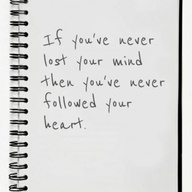 If you've never
lost your mind
then you've never
followed your
heart.